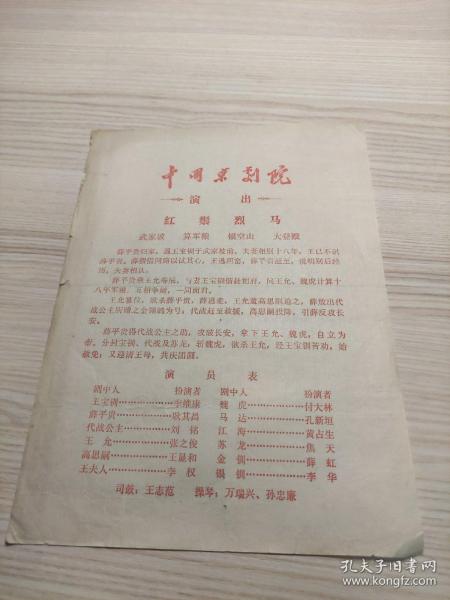 中国京剧院
演出
红鬃烈马
武家坡 算军粮 银空山 大登殿
薛平贵归家，遇王宝钏于武家坡前，夫妻相别十八年，王已不识
薛平贵，薛假借问路以试其心，王逃回窑，薛平贵赶至，说明别后经
历，夫妻相认。
薛平贵乘王允寿辰，与妻王宝钏偕赴相府，向王允、魏虎计算十
八年军粮，互相争闹，一同面君。
王允篡位，欲杀薛平贵，薛逃走，王允遣高思嗣追之，薛放出代
战公主所赠之金翎鸽为号，代战赶至救援，高思嗣投降，引薛反攻长
安。
薛平贵得代战公主之助，攻破长安，拿下王允、魏虎，自立为
帝，分封宝钏、代战及苏龙，斩魏虎，欲杀王允，经王宝钏苦劝，始
赦免；又迎请王母，共庆团圆。
演员表
剧中人 扮演者 剧中人 扮演者
王宝钏…………李维康 魏虎…………付大林
薛平贵…………耿其昌 马达…………孔新垣
代战公主………刘铭 江海…………黄占生
王允…………张之俊 苏龙…………焦天
高思嗣…………王晶和 金钏…………薛虹
王夫人…………李权 银钏…………李华
司鼓：王志范 操琴：万瑞兴、孙忠廉
孔夫子旧书网
www.kongfz.com